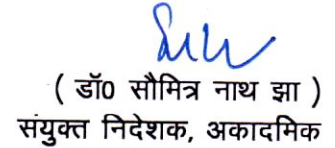 ( डॉ0 सौमित्र नाथ झा )
संयुक्त निदेशक, अकादमिक